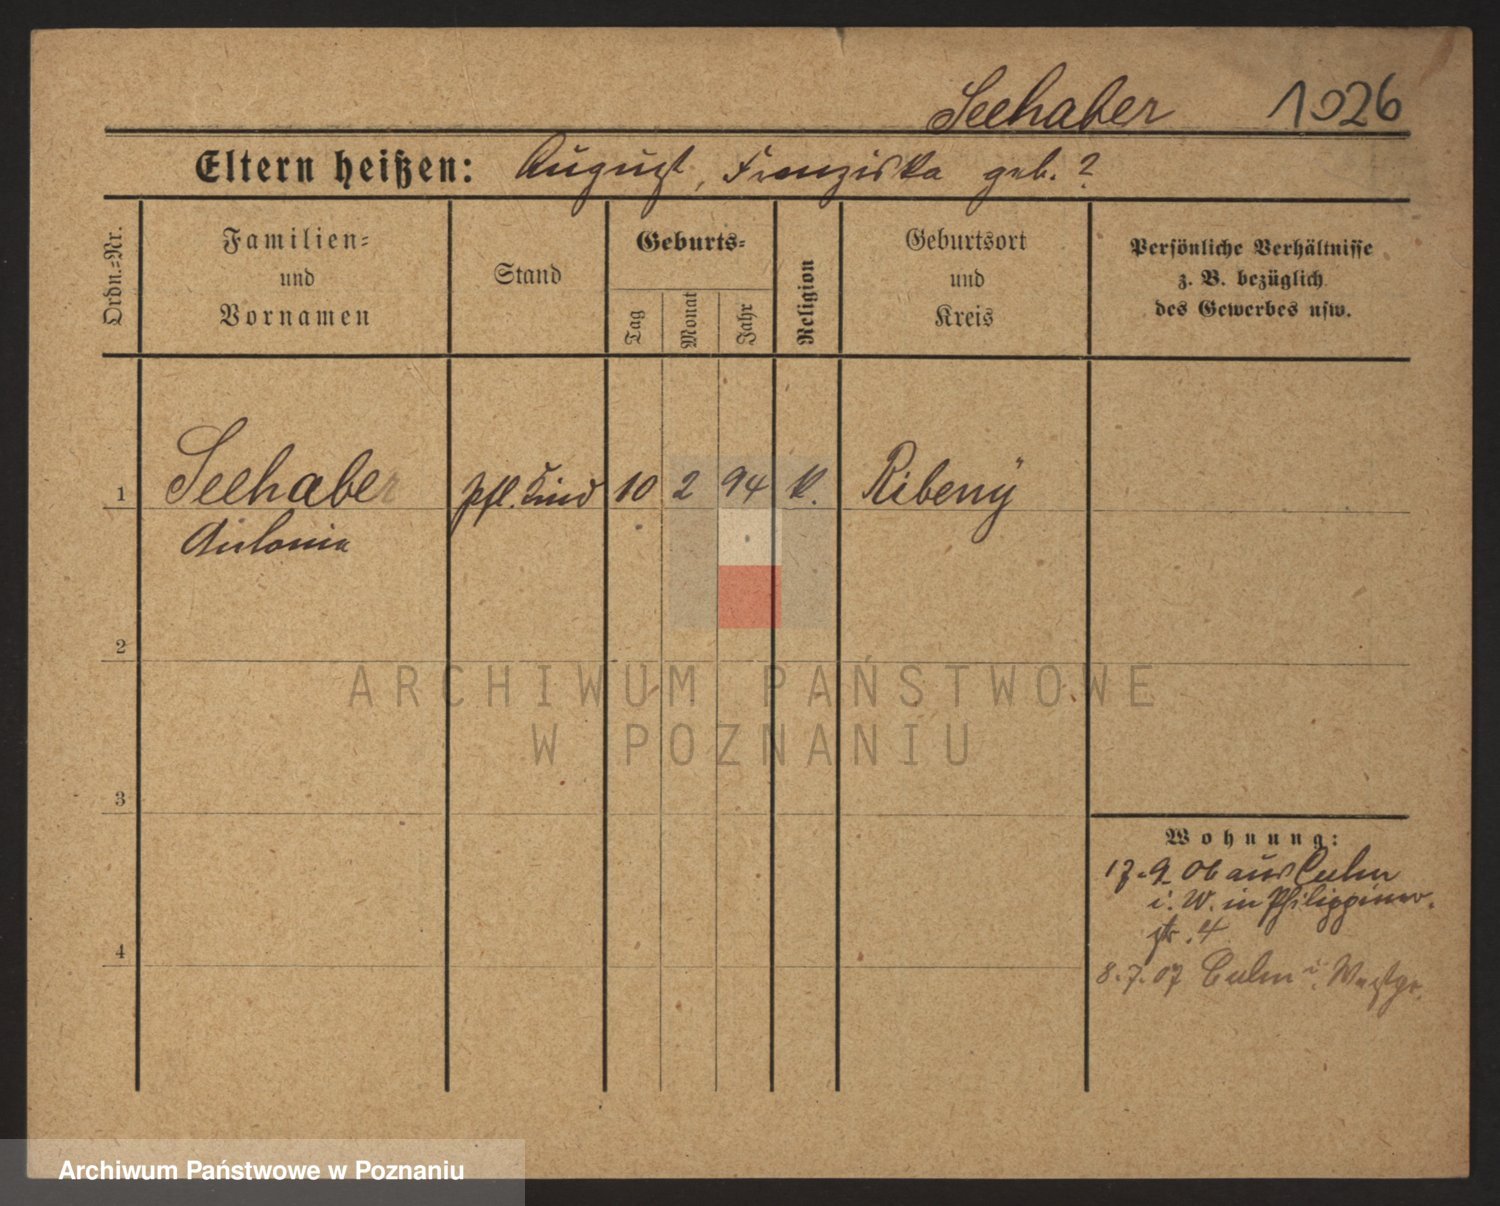 Seehaber 1026
Eltern heißen: August, Franziska geb. ?
Ordn.=Nr.
Familien=
und
Vornamen
Stand
Geburts=
Tag
Monat
Jahr
Religion
Geburtsort
und
Kreis
Persönliche Verhältnisse
z. B. bezüglich
des Gewerbes usw.
1 Seehaber pfl. Kind 10 2 94 k. Ribeny
Antonie
2
3
4
Wohnung:
17.9.06 aus Culm
i. W. in Philippinen-
str. 4
8.7.07 Culm i. Westpr.
ARCHIWUM PAŃSTWOWE
W POZNANIU
Archiwum Państwowe w Poznaniu